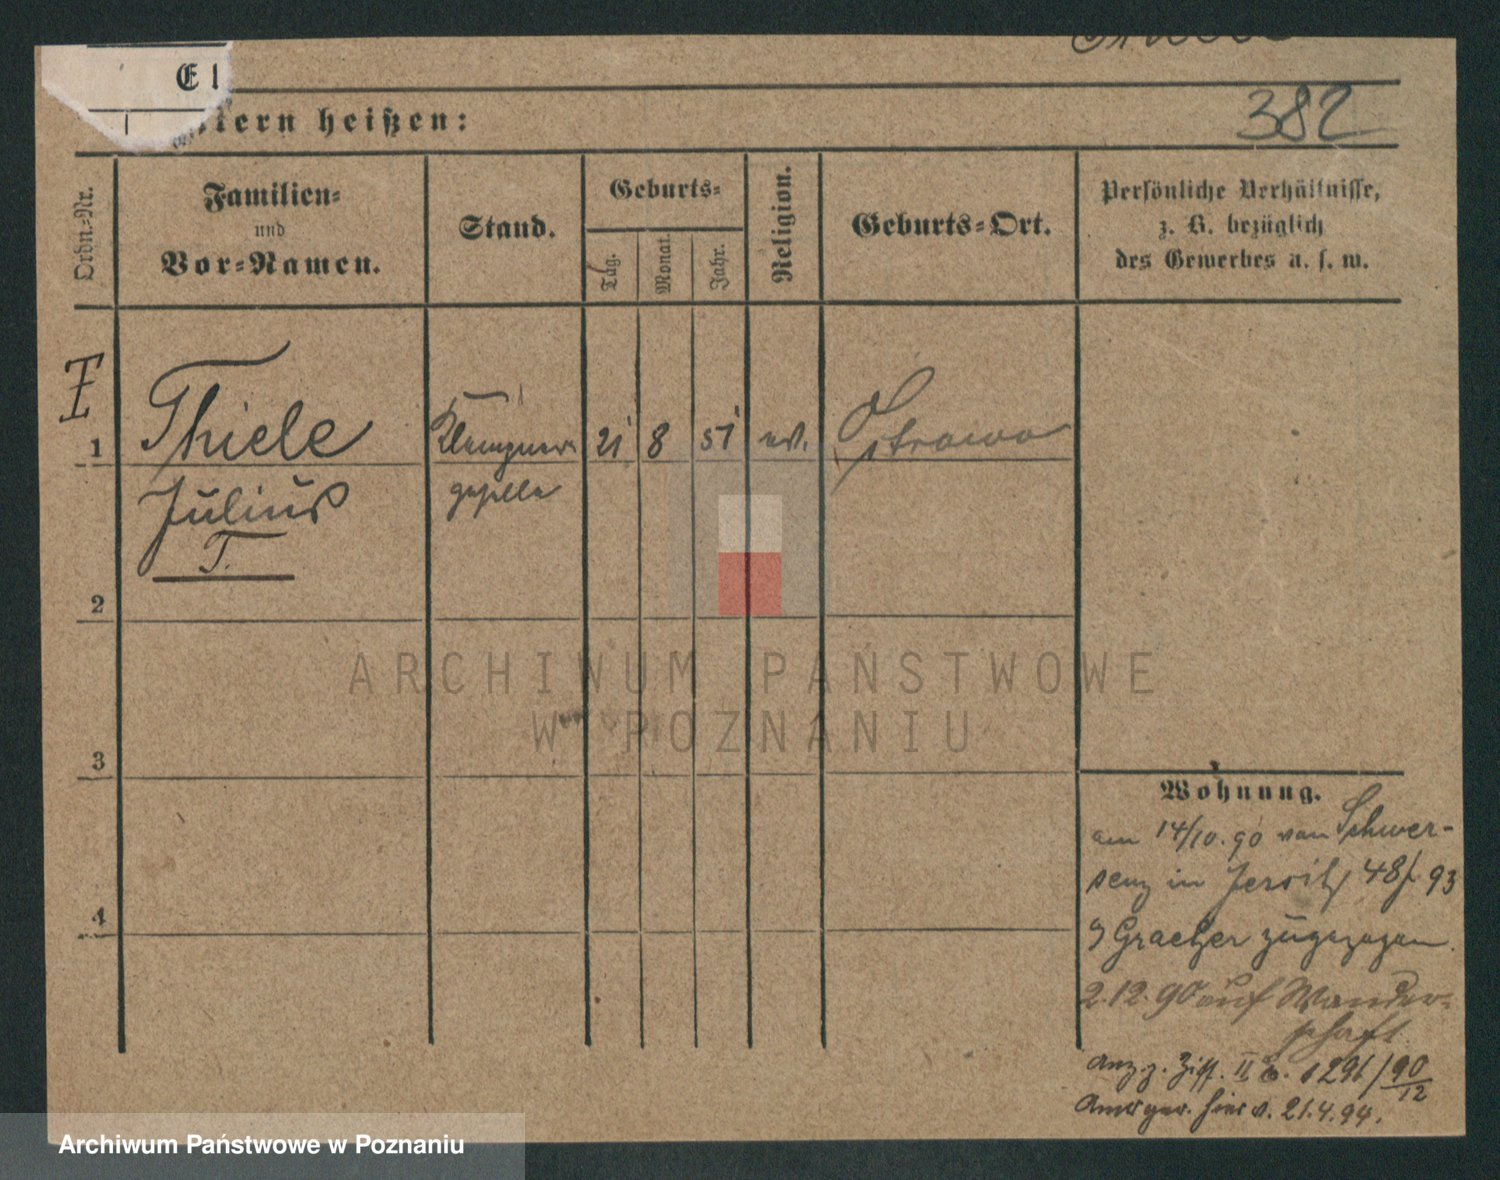 El
tern heißen:
382
Ordn.=Nr.
Familien=
und
Vor=Namen.
Stand.
Geburts=
Tag.
Monat.
Jahr.
Religion.
Geburts=Ort.
Persönliche Verhältnisse,
z. B. bezüglich
des Gewerbes u. s. w.
1
Thiele
Klempner
21
8
51
ev.
Ostrowo
Julius
geselle
T.
2
3
4
Wohnung.
am 14/10.90 von Schwer-
senz in Jersitz 48/ 93
Graetzer zugezogen.
2.12.90 auf Wander=
schaft.
Anz. z. Ziff. II 1291/90
12
hier v. 21.4.94.
ARCHIWUM PAŃSTWOWE
W POZNANIU
Archiwum Państwowe w Poznaniu